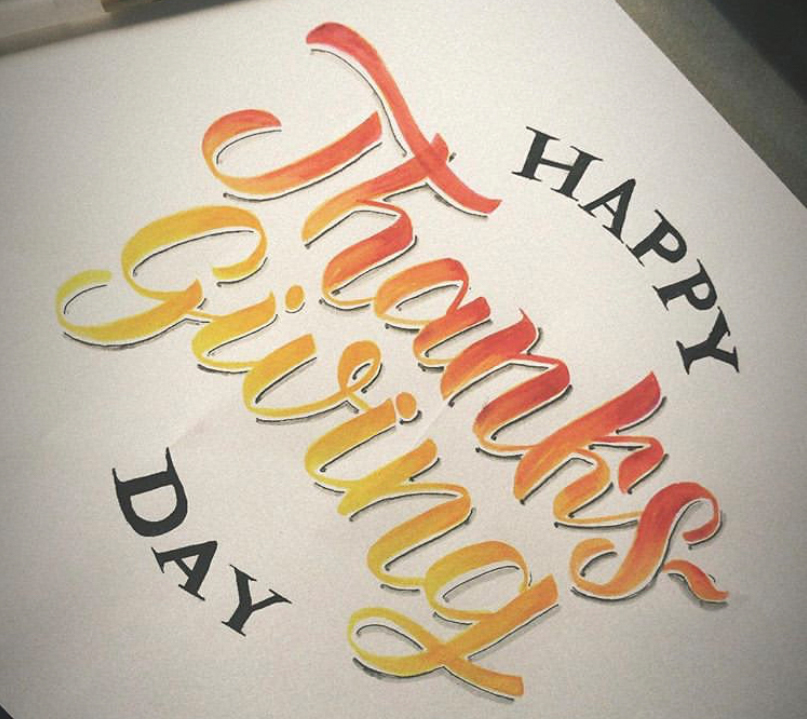 HAPPY
Thanks
Giving
DAY